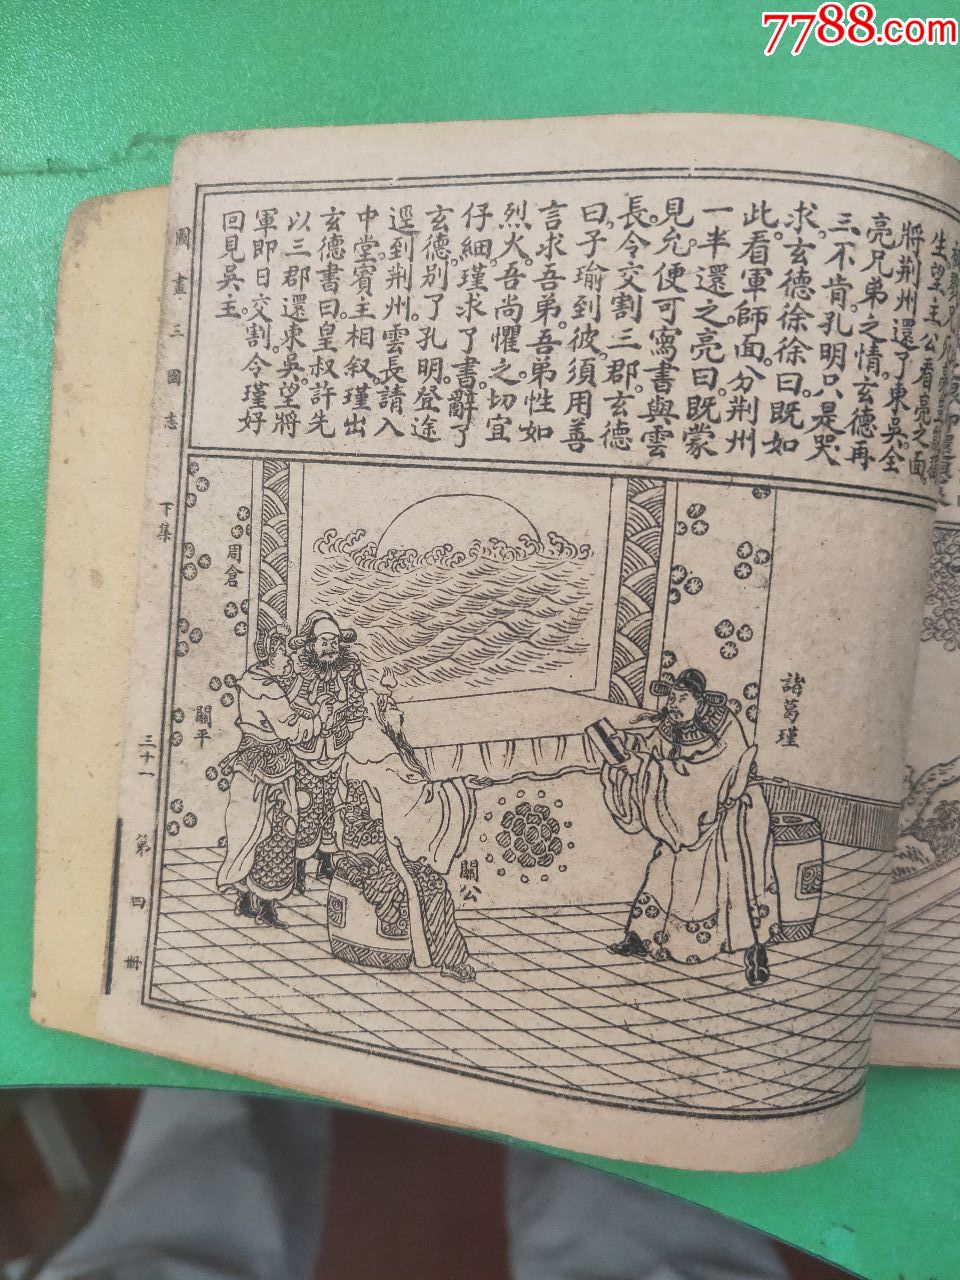 7788.com
生望主公看亮之面。
將荆州還了東吳。全
亮兄弟之情。玄德再
三不肯。孔明只是哭
求。玄德徐徐曰。既如
此。看軍師面。分荆州
一半還之。亮曰。既蒙
見允。便可寫書與雲
長。令交割三郡。玄德
曰。子瑜到彼。須用善
言求吾弟。吾弟性如
烈火。吾尚懼之。切宜
仔細。瑾求了書。辭了
玄德。别了孔明。登途
逕到荆州。雲長請入
中堂。賓主相叙。瑾出
玄德書曰。皇叔許先
以三郡還東吳。望將
軍即日交割。令瑾好
回見吳主。
諸葛瑾
關公
周倉
關平
圖畫三國志
下集
三十一
第四册